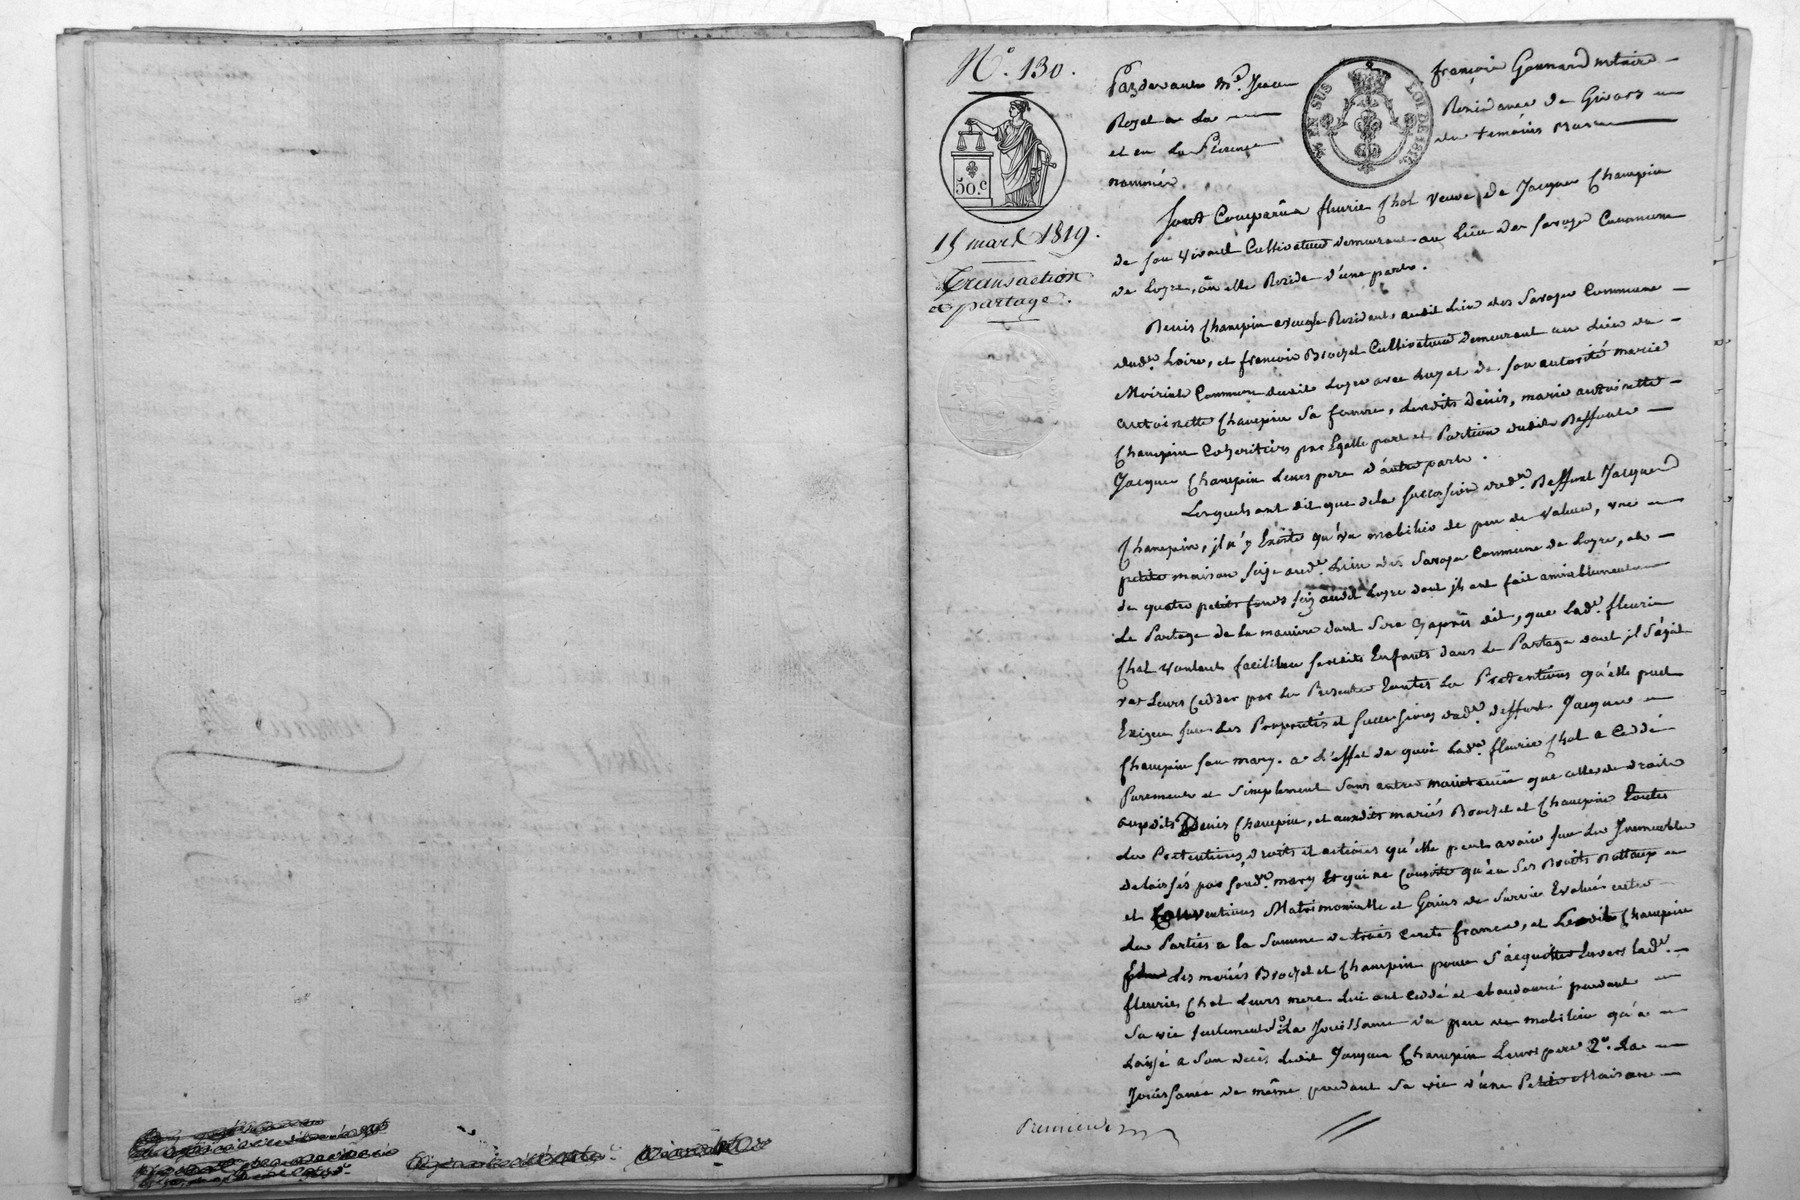 N°. 130.
50.c
15 mars 1819.
Transaction
et partage.
EN SUS LOI DE 1816.
Pardevant Me. Jean françois Gonnard notaire
Royal a La Residance de Givors
et en La Présence des temoins
nommés.
Sont Comparûs fleurie Chol veuve de Jacques Champin
de son vivant Cultivateur demeurant au Lieu des Saroges Commune
de Loyre, ou elle Reside d'une part.
Denis Champin Residant audit Lieu des Saroges Commune
dud. Loire, et françois Brozet Cultivateur demeurant au Lieu de
Commune dudit Loyre avec Luy et de son autorité marie
antoinette Champin sa femme, Lesdits Denis, marie antoinette
Champin Coheritiers par Egalle part et Portion dudit Deffunt
Jacques Champin Leurs pere d'autre part.
Lesquels ont dit que de la succession dud. Deffunt Jacques
Champin, il n'y Existe qu'un mobilier de peu de valeur, une
petite maison size aud. Lieu des Saroges Commune de Loyre, et
de quatre petits fonds audit Loyre dont ils ont fait amiablement
Le Partage de la maniere dont sera cy après dit, que lad. fleurie
Chol voulant faciliter sesdits Enfants dans Le Partage dont il s'agit
Leurs Cedder par Les Presentes Toutes Les Prétentions qu'elle peut
Exiger sur Les Propriétés et successions dud. deffunt Jacques
Champin son mary. a L'effet de quoi Lad. fleurie Chol a Ceddé
Purement et Simplement Sans autre maintenüe que celle de droit
auxdits Denis Champin, et auxdits mariés Brozet et Champin Toutes
Les Prétentions, droits et actions qu'elle peut avoir sur Les Immeubles
delaissés par sond. mary Et qui ne Consiste qu'en Ses Droits Dottaux
et Conventions Matrimonialle et Gains de Survie Evalués entre
Les Parties a la Somme de trois Cents francs, et Ledit Champin
Les mariés Brozet et Champin pour S'acquitter Envers Lad.
fleurie Chol Leurs mere Lui ont Ceddé et abandonné pendant
Sa vie seulement 1° La Jouissance du peu de mobilier qu'a
Laissé a Son decès Ledit Jacques Champin Leurs pere 2°. La
Jouissance de même pendant sa vie d'une Petite Maison